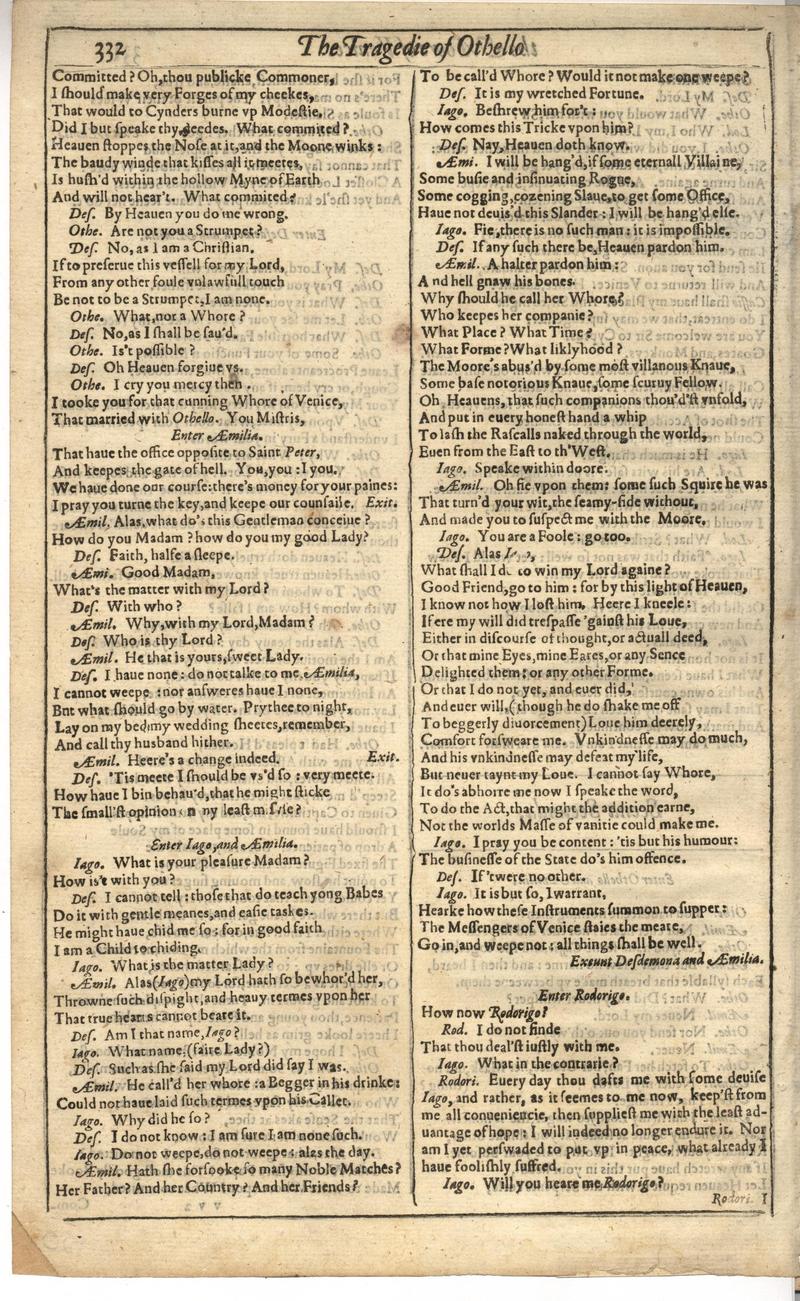 332 The Tragedie of Othello
Committed? Oh, thou publicke Commoner,
I ſhould make very Forges of my cheekes,
That would to Cynders burne vp Modeſtie,
Did I but ſpeake thy deedes. What commited?
Heauen ſtoppes the Noſe at it, and the Moone winks:
The baudy winde that kiſſes all it meetes,
Is huſh'd within the hollow Myne of Earth
And will not hear't. What commited?
Deſ. By Heauen you do me wrong.
Othe. Are not you a Strumpet?
Deſ. No, as I am a Chriſtian.
If to preſerue this veſſell for my Lord,
From any other foule vnlawfull touch
Be not to be a Strumpet, I am none.
Othe. What, not a Whore?
Deſ. No, as I ſhall be ſau'd.
Othe. Is't poſſible?
Deſ. Oh Heauen forgiue vs.
Othe. I cry you mercy then.
I tooke you for that cunning Whore of Venice,
That married with Othello. You Miſtris,
Enter Æmilia.
That haue the office oppoſite to Saint Peter,
And keepes the gate of hell. You, you: I you.
We haue done our courſe: there's money for your paines:
I pray you turne the key, and keepe our counſaile. Exit.
Æmil. Alas, what do's this Gentleman conceiue?
How do you Madam? how do you my good Lady?
Deſ. Faith, halfe a ſleepe.
Æmi. Good Madam,
What's the matter with my Lord?
Deſ. With who?
Æmil. Why, with my Lord, Madam?
Deſ. Who is thy Lord?
Æmil. He that is yours, ſweet Lady.
Deſ. I haue none: do not talke to me, Æmilia,
I cannot weepe: nor anſweres haue I none,
But what ſhould go by water. Prythee to night,
Lay on my bed my wedding ſheetes, remember,
And call thy husband hither.
Æmil. Heere's a change indeed. Exit.
Deſ. 'Tis meete I ſhould be vs'd ſo: very meete.
How haue I bin behau'd, that he might ſticke
The ſmall'ſt opinion ny leaſt
Enter Iago, and Æmilia.
Iago. What is your pleaſure Madam?
How is't with you?
Deſ. I cannot tell: thoſe that do teach yong Babes
Do it with gentle meanes, and eaſie taskes.
He might haue chid me ſo: for in good faith
I am a Child to chiding.
Iago. What is the matter Lady?
Æmil. Alas (Iago) my Lord hath ſo bewhor'd her,
Throwne ſuch diſpight, and heauy termes vpon her
That true hearts cannot beare it.
Deſ. Am I that name, Iago?
Iago. What name, (faire Lady?)
Deſ. Such as ſhe ſaid my Lord did ſay I was.
Æmil. He call'd her whore: a Begger in his drinke:
Could not haue laid ſuch termes vpon his Callet.
Iago. Why did he ſo?
Deſ. I do not know: I am ſure I am none ſuch.
Iago. Do not weepe, do not weepe: alas the day.
Æmil. Hath ſhe forſooke ſo many Noble Matches?
Her Father? And her Country? And her Friends?
To be call'd Whore? Would it not make one weepe?
Deſ. It is my wretched Fortune.
Iago. Beſhrew him for't:
How comes this Tricke vpon him?
Deſ. Nay, Heauen doth know.
Æmi. I will be hang'd, if ſome eternall Villaine,
Some buſie and inſinuating Rogue,
Some cogging, cozening Slaue, to get ſome Office,
Haue not deuis'd this Slander: I will be hang'd elſe.
Iago. Fie, there is no ſuch man: it is impoſſible.
Deſ. If any ſuch there be, Heauen pardon him.
Æmil. A halter pardon him:
And hell gnaw his bones.
Why ſhould he call her Whore?
Who keepes her companie?
What Place? What Time?
What Forme? What liklyhood?
The Moore's abus'd by ſome moſt villanous Knaue,
Some baſe notorious Knaue, ſome ſcuruy Fellow.
Oh Heauens, that ſuch companions thou'd'ſt vnfold,
And put in euery honeſt hand a whip
To laſh the Raſcalls naked through the world,
Euen from the Eaſt to th'Weſt.
Iago. Speake within doore.
Æmil. Oh fie vpon them: ſome ſuch Squire he was
That turn'd your wit, the ſeamy-ſide without,
And made you to ſuſpect me with the Moore.
Iago. You are a Foole: go too.
Deſ. Alas
What ſhall I do to win my Lord againe?
Good Friend, go to him: for by this light of Heauen,
I know not how I loſt him. Heere I kneele:
If ere my will did treſpaſſe 'gainſt his Loue,
Either in diſcourſe of thought, or actuall deed,
Or that mine Eyes, mine Eares, or any Sence
Delighted them: or any other Forme.
Or that I do not yet, and euer did,
And euer will, (though he do ſhake me off
To beggerly diuorcement) Loue him deerely,
Comfort forſweare me. Vnkindneſſe may do much,
And his vnkindneſſe may defeat my life,
But neuer taynt my Loue. I cannot ſay Whore,
It do's abhorre me now I ſpeake the word,
To do the Act, that might the addition earne,
Not the worlds Maſſe of vanitie could make me.
Iago. I pray you be content: 'tis but his humour:
The buſineſſe of the State do's him offence.
Deſ. If 'twere no other.
Iago. It is but ſo, I warrant,
Hearke how theſe Inſtruments ſummon to ſupper:
The Meſſengers of Venice ſtaies the meate,
Go in, and weepe not: all things ſhall be well.
Exeunt Deſdemona and Æmilia.
Enter Rodorigo.
How now Rodorigo?
Rod. I do not finde
That thou deal'ſt iuſtly with me.
Iago. What in the contrarie?
Rodori. Euery day thou dafts me with ſome deuiſe
Iago, and rather, as it ſeemes to me now, keep'ſt from
me all conueniencie, then ſupplieſt me with the leaſt ad-
uantage of hope: I will indeed no longer endure it. Nor
am I yet perſwaded to put vp in peace, what already I
haue fooliſhly ſuffred.
Iago. Will you heare me Rodorigo?
Rodori. I